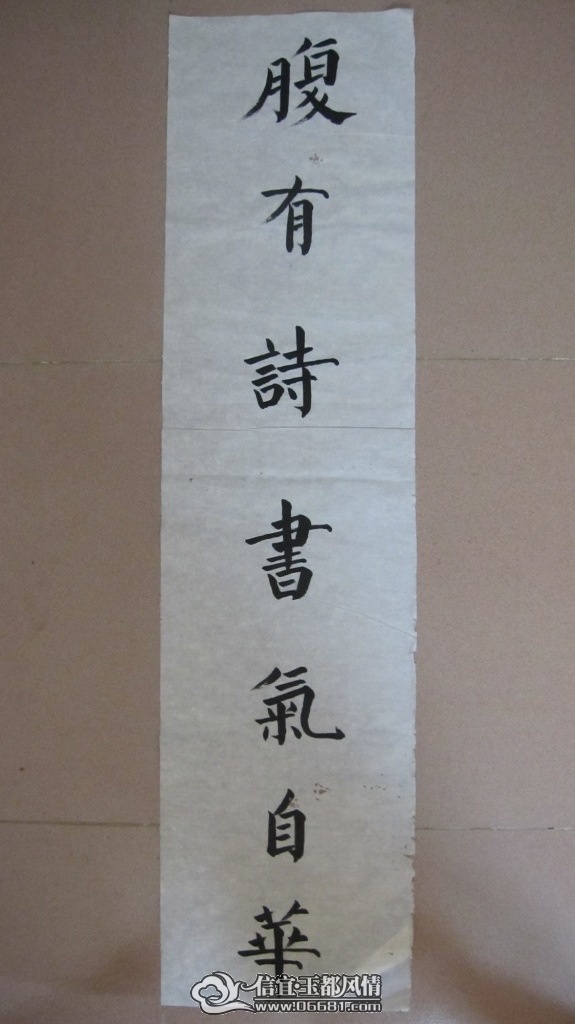 腹有詩書氣自華
信宜玉都风情
www.06681.com